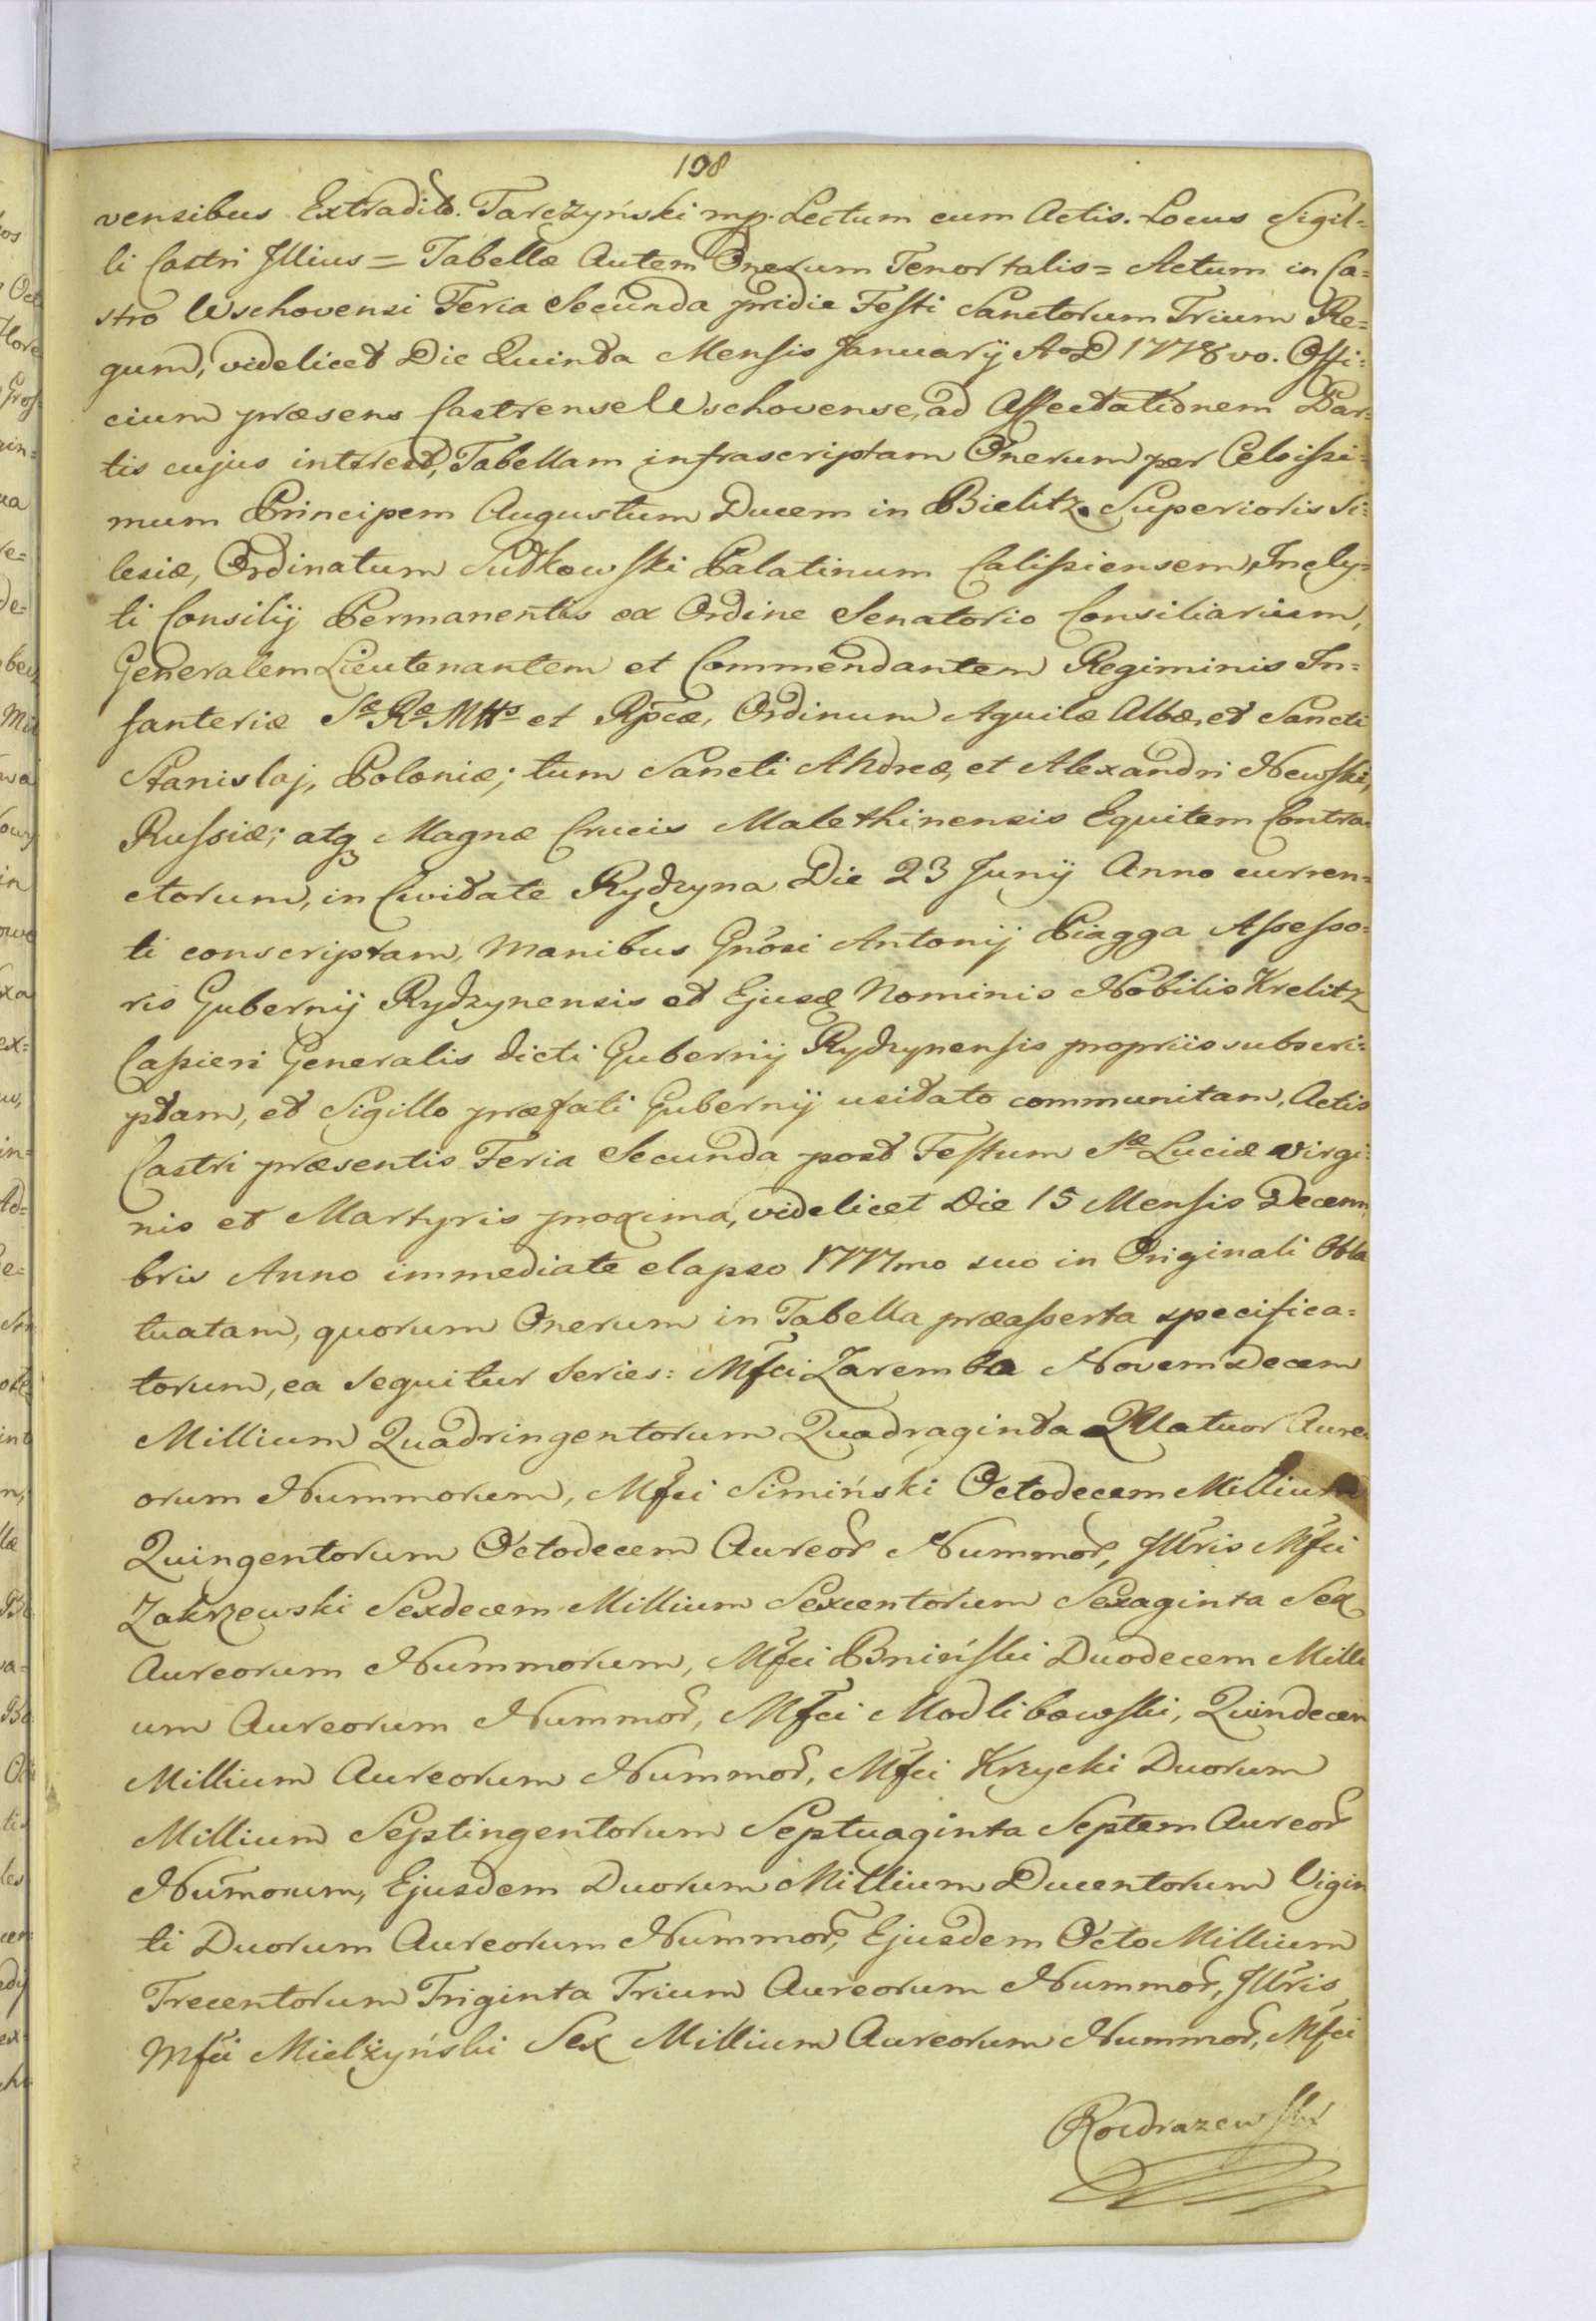 198
vensibus Extradit. Tarczyński mp. Lectum cum Actis. Locus Sigil=
li Castri Illius = Tabellæ Autem Onerum Tenor talis = Actum in Ca=
stro Wschovensi Feria Secunda pridie Festi Sanctorum Trium Re=
gum, videlicet Die Quinta Mensis Januarij A°D 1778vo. Offi=
cium præsens Castrense Wschovense, ad Affectationem Par=
tis cujus interest, Tabellam infrascriptam Onerum per Celsissi=
mum Principem Augustum Ducem in Bielitz Superioris Si=
lesiæ, Ordinatum Sułkowski Palatinum Calissiensem, Incly=
ti Consilij Permanentis ex Ordine Senatorio Consiliarium,
Generalem Lieutenantem et Commendantem Regiminis In=
fanteriæ Sæ Ræ Mttis et Rpcæ, Ordinum Aquilæ Albæ, et Sancti
Stanislaj, Poloniæ; tum Sancti Andreæ, et Alexandri Newski,
Russiæ; atq Magnæ Crucis Malethinensis Equitem Contra=
ctorum, in Civitate Rydzyna Die 23 Junij Anno curren=
ti conscriptam, Manibus Gnosi Antonij Piagga Assesso=
ris Gubernij Rydzynensis et Ejusd Nominis Nobilis Krelitz
Cassieri Generalis dicti Gubernij Rydzynensis propriis subscri=
ptam, et Sigillo præfati Gubernij usitato communitam, Actis
Castri præsentis Feria Secunda post Festum Sæ Luciæ Virgi=
nis et Martyris proxima, videlicet Die 15 Mensis Decem
bris Anno immediate elapso 1777mo suo in Originali Obla
tuatam, quorum Onerum in Tabella præasserta specifica=
torum, ea sequitur Series: Mfci Zaremba Novemdecem
Millium Quadringentorum Quadraginta Quatuor Aure
orum Nummorum, Mfci Simiński Octodecem Millium
Quingentorum Octodecem Aureor Nummor, Illris Mfci
Zakrzewski Sexdecem Millium Sexcentorum Sexaginta Sex
Aureorum Nummorum, Mfci Bniński Duodecem Milli
um Aureorum Nummor, Mfci Modlibowski, Quindecem
Millium Aureorum Nummor, Mfci Krzycki Duorum
Millium Septingentorum Septuaginta Septem Aureor
Numorum, Ejusdem Duorum Millium Ducentorum Vigin
ti Duorum Aureorum Nummor, Ejusdem Octo Millium
Trecentorum Triginta Trium Aureorum Nummor, Illris
Mfci Mielżyński Sex Millium Aureorum Nummor, Mfci